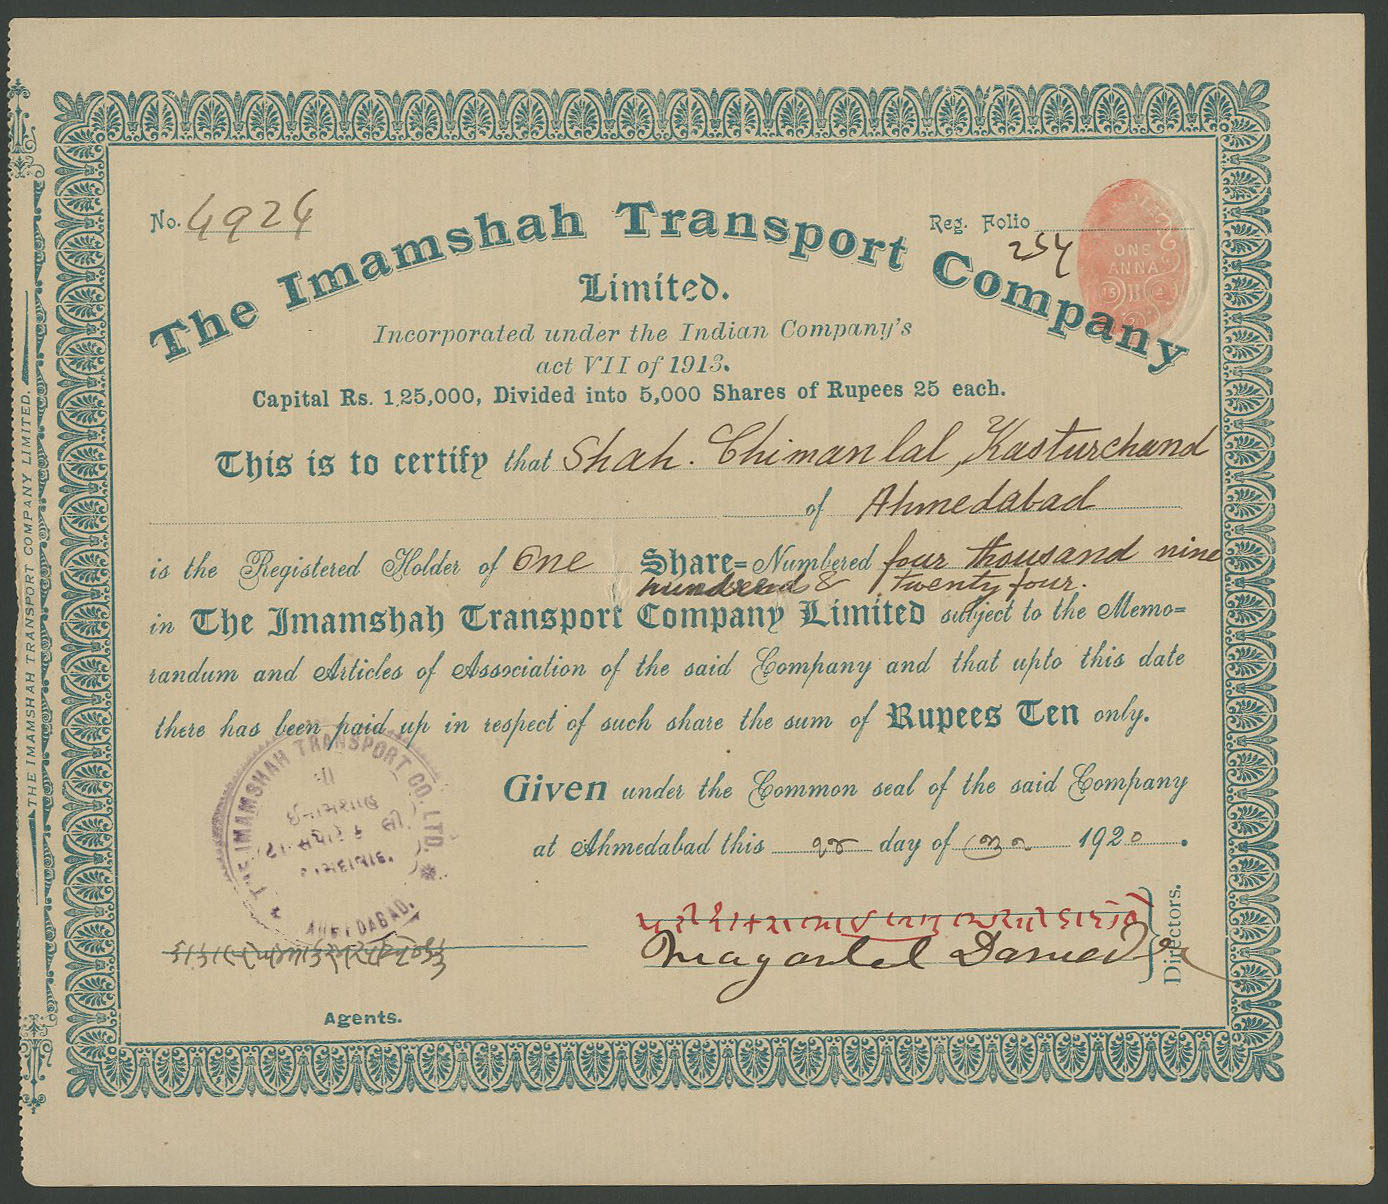 No. 4924
Reg. Folio 254
ONE
ANNA
The Imamshah Transport Company
Limited.
Incorporated under the Indian Company's
act VII of 1913.
Capital Rs. 1,25,000, Divided into 5,000 Shares of Rupees 25 each.
This is to certify that Shah. Chimanlal, Kasturchand
of Ahmedabad
is the Registered Holder of One Share=Numbered four thousand nine
hundered & twenty four.
in The Imamshah Transport Company Limited subject to the Memo=
randum and Articles of Association of the said Company and that upto this date
there has been paid up in respect of such share the sum of Rupees Ten only.
Given under the Common seal of the said Company
at Ahmedabad this day of 1920.
THE IMAMSHAH TRANSPORT CO. LTD.
AHMEDABAD.
Directors.
Agents.
THE IMAMSHAH TRANSPORT COMPANY LIMITED.